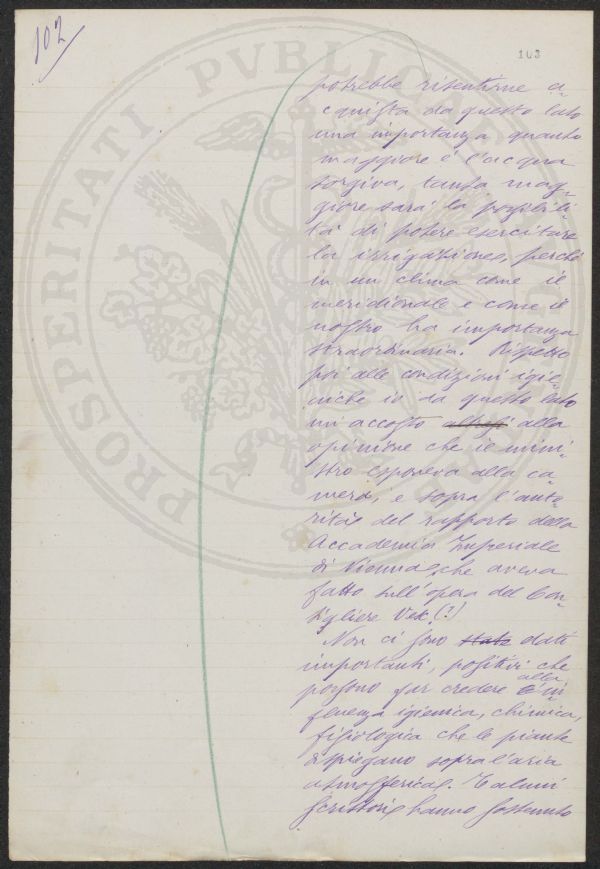 102
103
PROSPERITATI PVBLICAE
potrebbe risentirne a-
cquista da questo lato
una importanza quanto
maggiore è l'acqua
sorgiva, tanta mag-
giore sarà la possibili-
tà di potere esercitare
la irrigazione, perchè
in un clima come il
meridionale e come il
nostro ha importanza
straordinaria. Rispetto
poi alle condizioni igie-
niche io da questo lato
mi accosto altresì alla
opinione che il mini-
stro esponeva alla ca-
mera, e sopra l'auto-
rità del rapporto della
Accademia Imperiale
di Vienna, che aveva
fatto sull'opera del Con-
sigliere Vex (?)
Non ci sono state dati
importanti, positivi che
possono far credere alla in-
fluenza igienica, chimica,
fisiologica che le piante
spiegano sopra l'aria
atmosferica. Taluni
scrittori hanno sostenuto